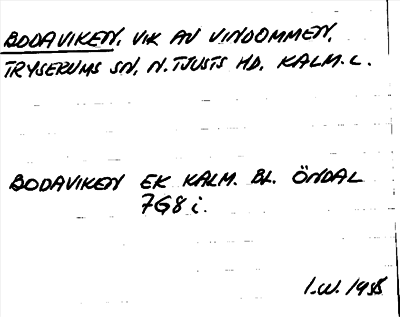 BODAVIKEN, VIK AV VINDOMMEN,
TRYSERUMS SN, N. TJUSTS HD, KALM. L.
BODAVIKEN EK KALM. BL. ÖNDAL
7G8 i.
I.W. 1958